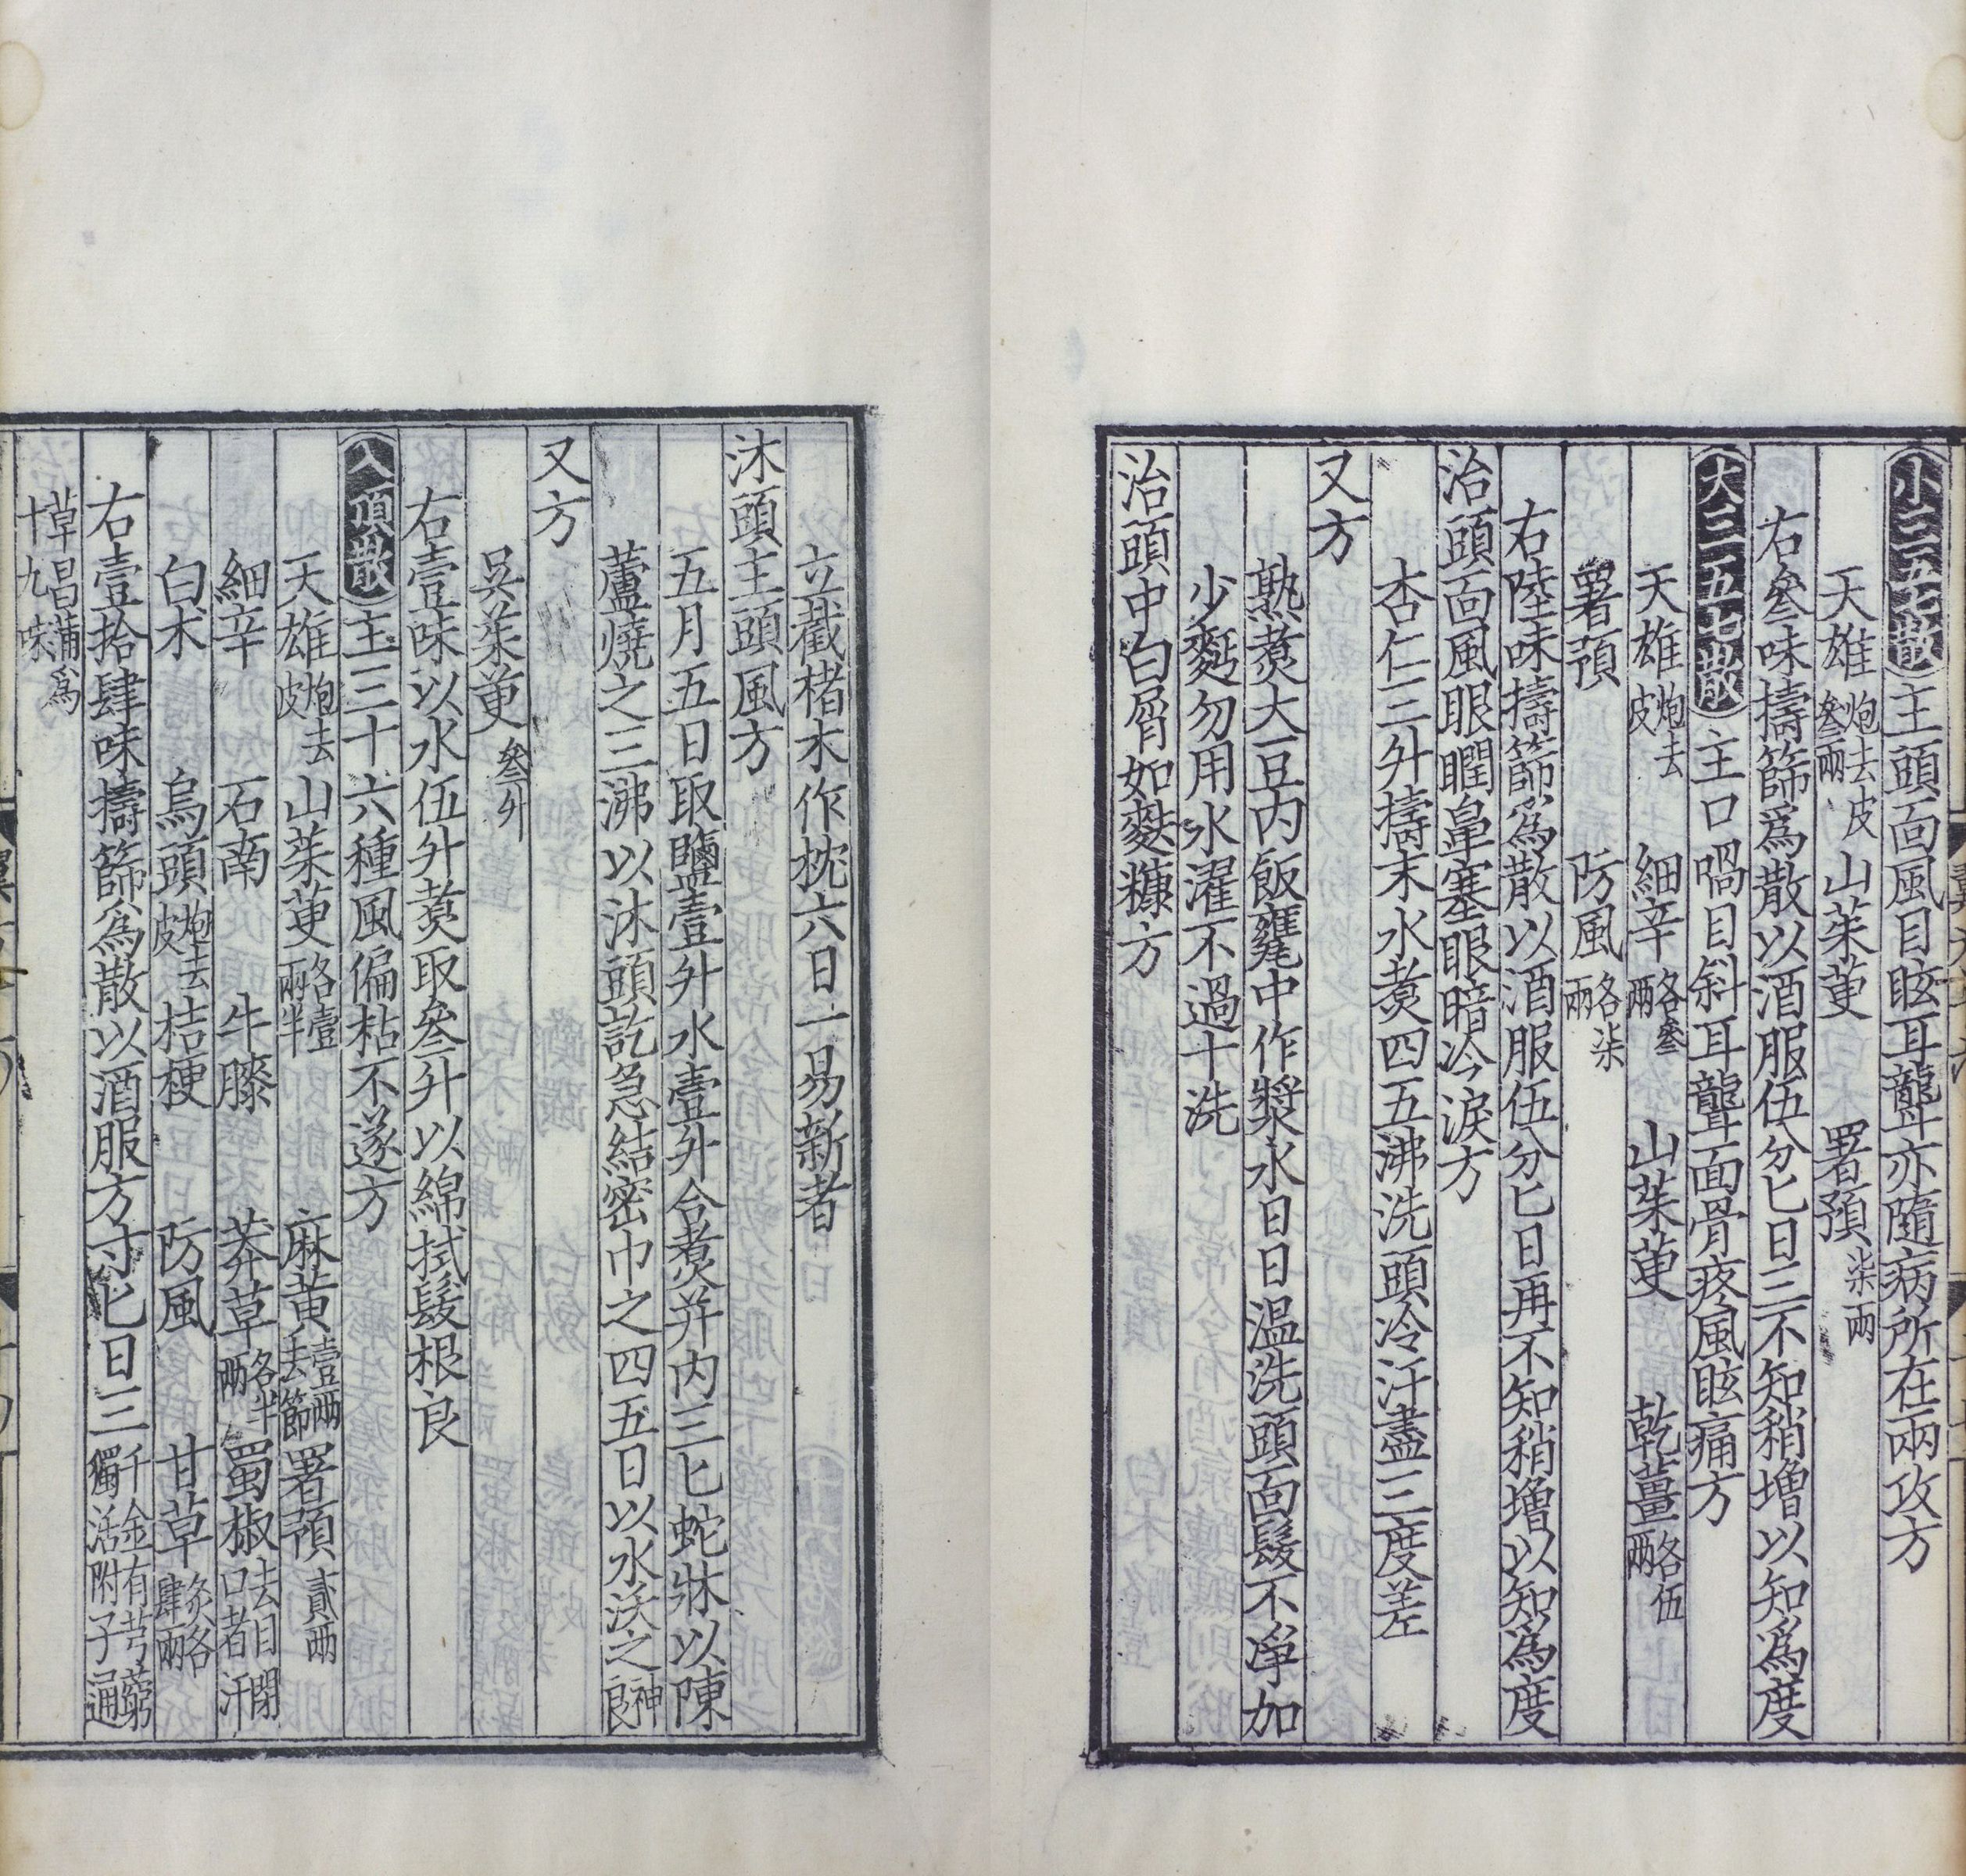 小三五七散主頭面風目眩耳聾亦隨病所在兩攻方
天雄炮去皮叄兩 山茱萸 署預柒兩
右叄味擣篩為散以酒服伍分匕日三不知稍增以知為度
大三五七散主口喎目斜耳聾面骨疼風眩痛方
天雄炮去皮 細辛各叄兩 山茱萸 乾薑各伍兩
署預 防風各柒兩
右陸味擣篩為散以酒服伍分匕日再不知稍增以知為度
治頭面風眼瞤鼻塞眼暗冷淚方
杏仁三升擣末水煑四五沸洗頭冷汗盡三度差
又方
熟煑大豆内飯甕中作漿水日日温洗頭面髮不淨加
少麪勿用水濯不過十洗
治頭中白屑如麩糠方
立截楮木作枕六日一易新者
沐頭主頭風方
五月五日取鹽壹升水壹升合煑并内三匕蛇牀以陳
蘆燒之三沸以沐頭訖急結密巾之四五日以水沃之神良
又方
吳茱萸叄升
右壹味以水伍升煑取叄升以綿拭髮根良
入頂散主三十六種風偏枯不遂方
天雄炮去皮 山茱萸各壹兩半 麻黄壹兩去節 署預貳兩
細辛 石南 牛膝 莽草各半兩 蜀椒去目閉口者汗
白朮 烏頭炮去皮 桔梗 防風 甘草炙各肆兩
右壹拾肆味擣篩為散以酒服方寸匕日三千金有芎藭獨活附子通
草昌蒲為十九味